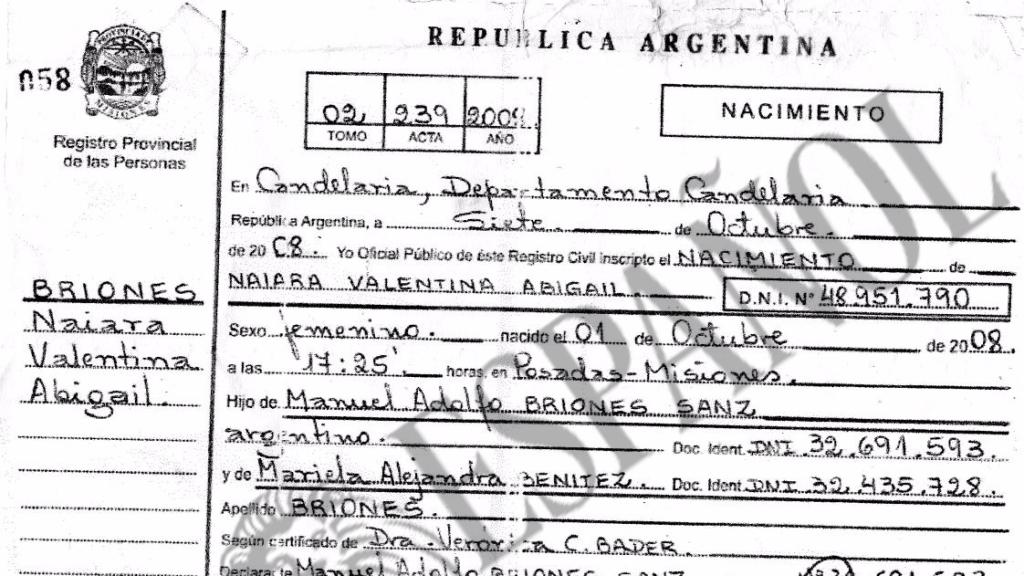 REPUBLICA ARGENTINA
058
PROVINCIA DE MISIONES
Registro Provincial
de las Personas
02 239 2008
TOMO ACTA AÑO
NACIMIENTO
En Candelaria, Departamento Candelaria
República Argentina, a Siete de Octubre.
de 20 08. Yo Oficial Público de éste Registro Civil inscripto el NACIMIENTO de
NAIARA VALENTINA ABIGAIL. D.N.I. N° 48.951.790
Sexo femenino. nacido el 01 de Octubre de 2008.
a las 17:25' horas, en Posadas-Misiones.
Hijo de Manuel Adolfo BRIONES SANZ
argentino. Doc. Ident. DNI 32.691.593.
y de Mariela Alejandra BENITEZ. Doc. Ident. DNI 32.435.728.
Apellido BRIONES.
Según certificado de Dra. Veronica C. BADER.
Declarante Manuel Adolfo BRIONES SANZ
BRIONES
Naiara
Valentina
Abigail.
ESPAÑOL